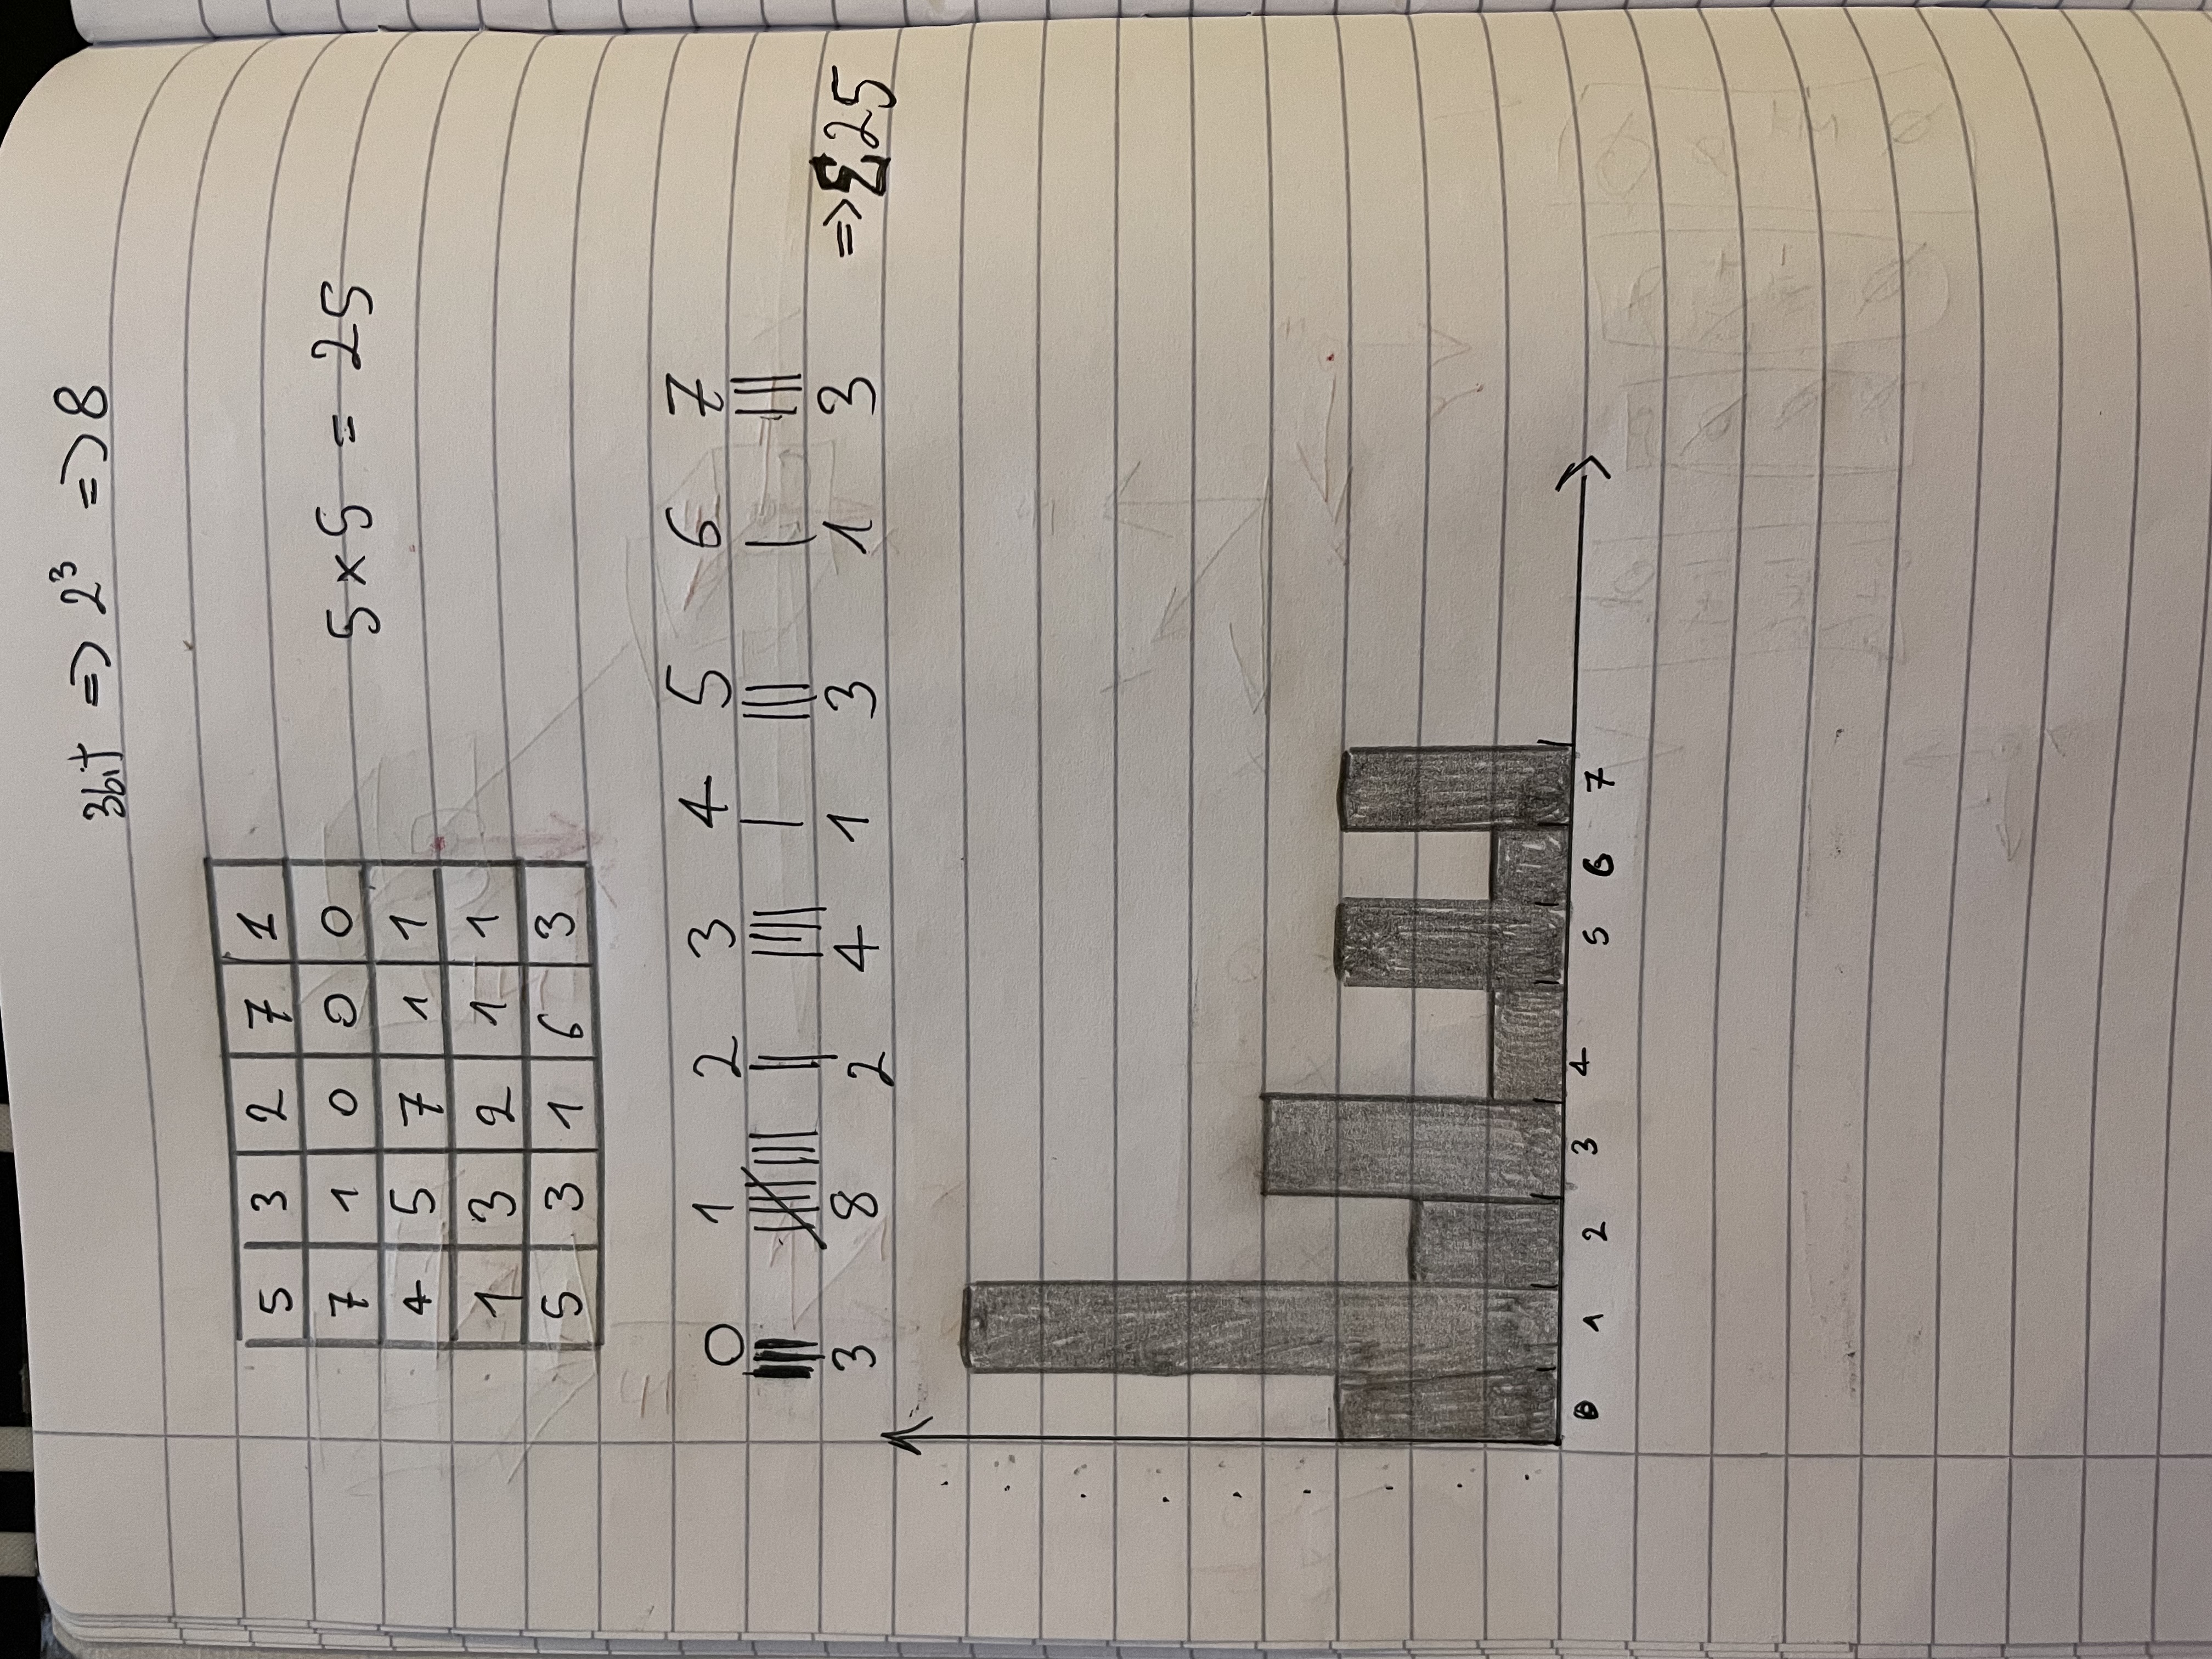 3bit => 2³ => 8
5 3 2 7 1
7 1 0 0 0
5 x 5 = 25
4 5 7 1 1
1 3 2 1 1
5 3 1 6 3
0 1 2 3 4 5 6 7
3 8 2 4 1 3 1 3 => Σ25
0 1 2 3 4 5 6 7